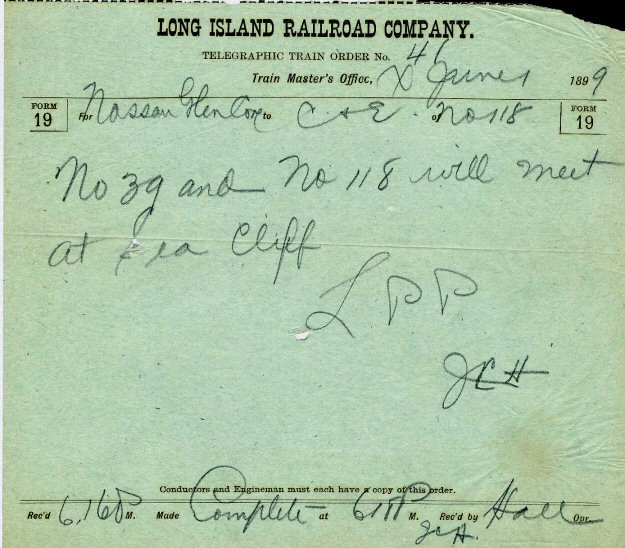 LONG ISLAND RAILROAD COMPANY.
TELEGRAPHIC TRAIN ORDER No. 46
Train Master's Office, 1899
FORM 19 For Nassau Glen Cove to C & E of No 118 FORM 19
No 39 and No 118 will meet
at Sea Cliff
L P P
J C H
Conductors and Engineman must each have a copy of this order.
Rec'd 6,16 P M. Made Complete at M. Rec'd by Hall Opr.
JCH.